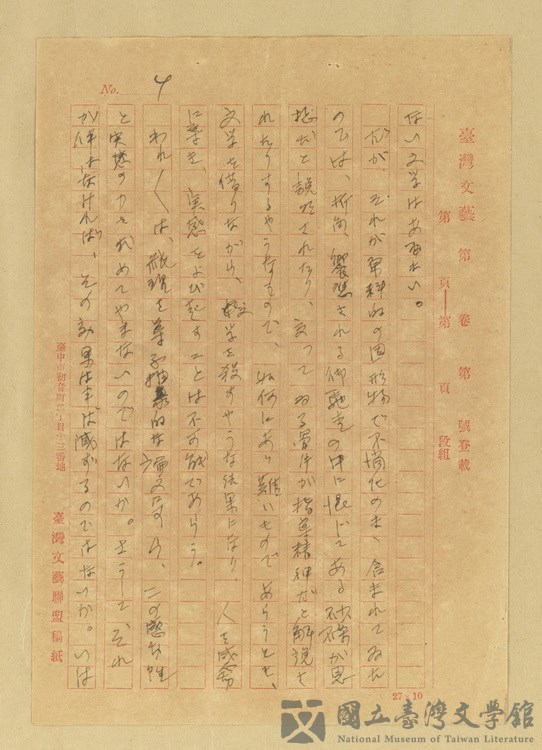 No. 4
臺灣文藝 第 卷 第 號登載
第 頁——第 頁 段組
ない文学はあるまい。
だが、それが原料的の固形物で不消化のまゝ含まれてゐた
のでは、折角饗應される御馳走の中に混じてある砂礫が思
想だと説明されたり、交つてゐる骨片が指導精神だと解説さ
れたりするやうなもので、如何にあり難いものであらうとも、
文学を借りながら、文学を殺すやうな結果になり、人を感奮
に導き、実感をよび起すことは不可能であらう。
われ/\は、純理を尊ぶ抽象的な論文にすら、この感な性
と実感の力を求めてやまないのではないか。さうして、それ
が伴はなければ、その効果は半ば滅ずるのではないか。いは
臺中市初音町二丁目十三番地
臺灣文藝聯盟稿紙
27×10
國立臺灣文學館
National Museum of Taiwan Literature